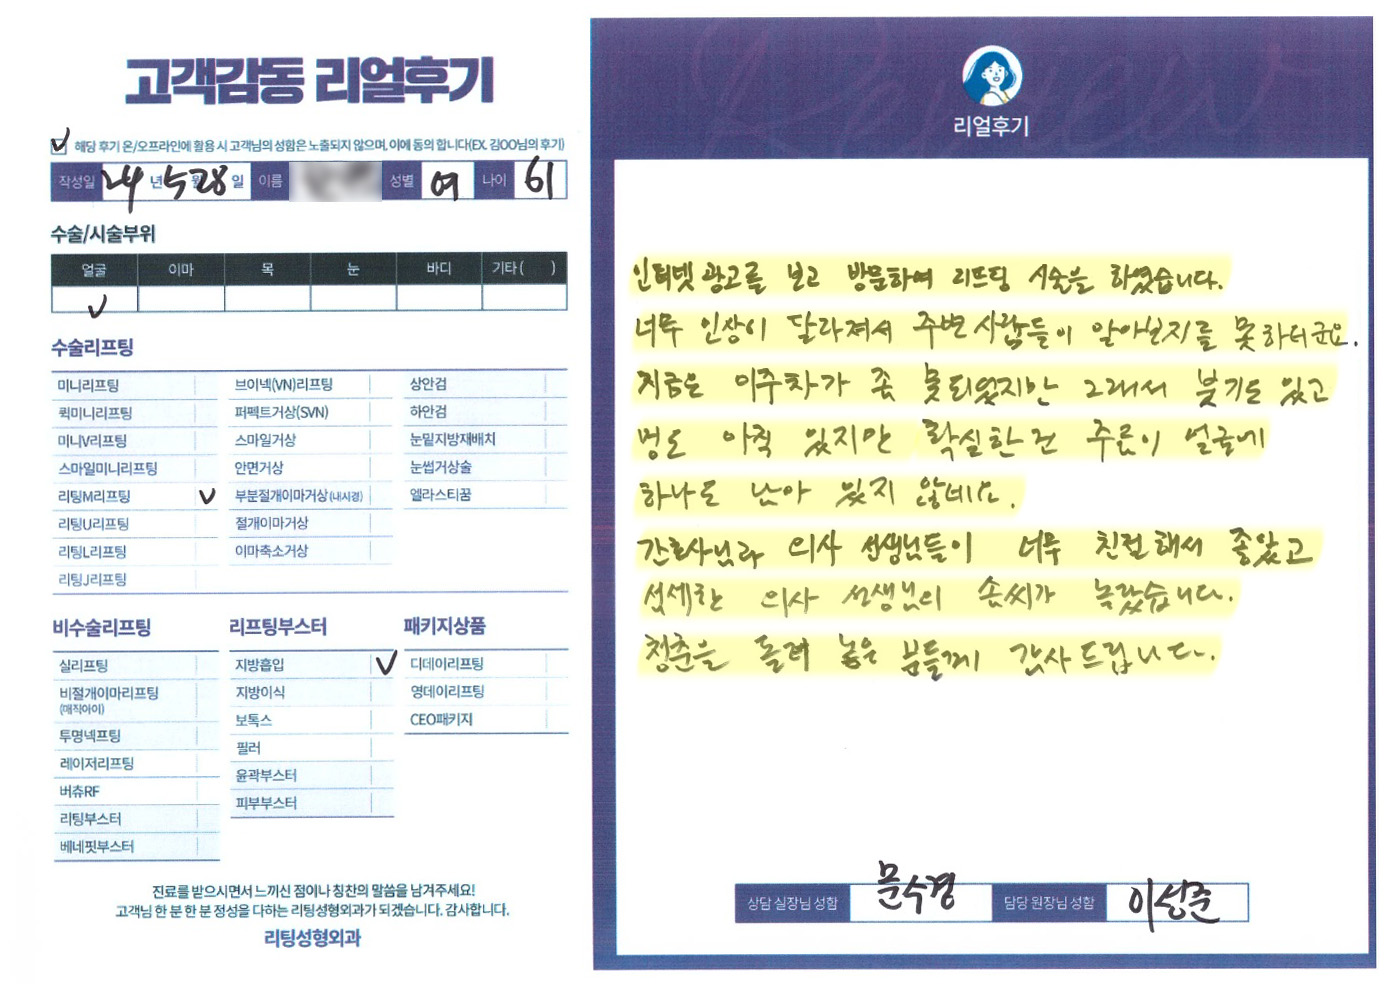 고객감동 리얼후기
✓ 해당 후기 온/오프라인에 활용 시 고객님의 성함은 노출되지 않으며, 이에 동의 합니다(EX. 김OO님의 후기)
작성일 24 년 5 월 28 일 이름 성별 여 나이 61
수술/시술부위
얼굴 이마 목 눈 바디 기타 ( )
✓
수술리프팅
미니리프팅
퀵미니리프팅
미니V리프팅
스마일미니리프팅
리팅M리프팅 ✓
리팅U리프팅
리팅L리프팅
리팅J리프팅
브이넥(VN)리프팅
퍼펙트거상(SVN)
스마일거상
안면거상
부분절개이마거상(내시경)
절개이마거상
이마축소거상
상안검
하안검
눈밑지방재배치
눈썹거상술
엘라스티꿈
비수술리프팅
실리프팅
비절개이마리프팅
(매직아이)
투명넥프팅
레이저리프팅
버츄RF
리팅부스터
베네핏부스터
리프팅부스터
지방흡입 ✓
지방이식
보톡스
필러
윤곽부스터
피부부스터
패키지상품
디데이리프팅
영데이리프팅
CEO패키지
진료를 받으시면서 느끼신 점이나 칭찬의 말씀을 남겨주세요!
고객님 한 분 한 분 정성을 다하는 리팅성형외과가 되겠습니다. 감사합니다.
리팅성형외과
Review
리얼후기
인터넷 광고를 보고 방문하여 리프팅 시술을 하였습니다.
너무 인상이 달라져서 주변 사람들이 알아보지를 못하더군요.
지금은 이주차가 좀 못되었지만 그래서 붓기도 있고
멍도 아직 있지만 확실한 건 주름이 얼굴에
하나도 남아 있지 않네요.
간호사님과 의사 선생님들이 너무 친절해서 좋았고
섬세한 의사 선생님의 솜씨가 놀랐습니다.
청춘을 돌려 놓은 분들께 감사드립니다.
상담 실장님 성함 문수경 담당 원장님 성함 이성준